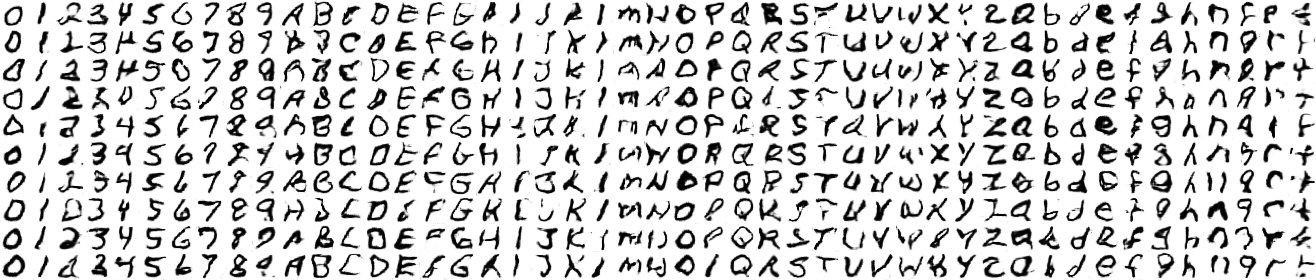 0 1 2 3 4 5 6 7 8 9 A B C D E F G A I J K I m N O P Q R S T U V W X Y Z a b d e f g h n r t
0 1 2 3 4 5 6 7 8 9 A B C D E F G H I J K I m N O P Q R S T U V W X Y Z a b d e f g h n q r t
0 1 2 3 4 5 0 7 8 9 A B C D E F G H I J K I m O P Q R S T U V W X Y Z a b d e f g h n g r t
0 1 2 3 5 6 7 8 9 A B C D E F G H I J K I m O P Q S T U V X Y Z a b d e f h n q r
0 1 2 3 4 5 6 7 8 9 A B C D E F G H J I m N O P R S T V W X Y Z a b d e f g h n F
0 1 2 3 4 5 6 7 8 B C D E F G H I J K I m N O R Q R S T U V W X Y Z a b d e f g h n g r t
0 1 2 3 4 5 6 7 8 9 A B C D E F G A I J K I m N O P Q R S T U V W X Y Z a b d e f g h n g r t
0 1 3 4 5 6 7 8 9 A C D F G K K I m N O P Q K S T U V W X Y Z a b d e f g h n q r t
0 1 2 3 4 5 6 7 8 9 A B C D E F G H I J K I m N O P Q R S T U V Y Z a b d e f g h n q r t
0 1 2 3 4 5 6 7 8 9 A B C D E G H I J K I m N O P Q R S T U V W X Y Z a b d e f g h n g r t